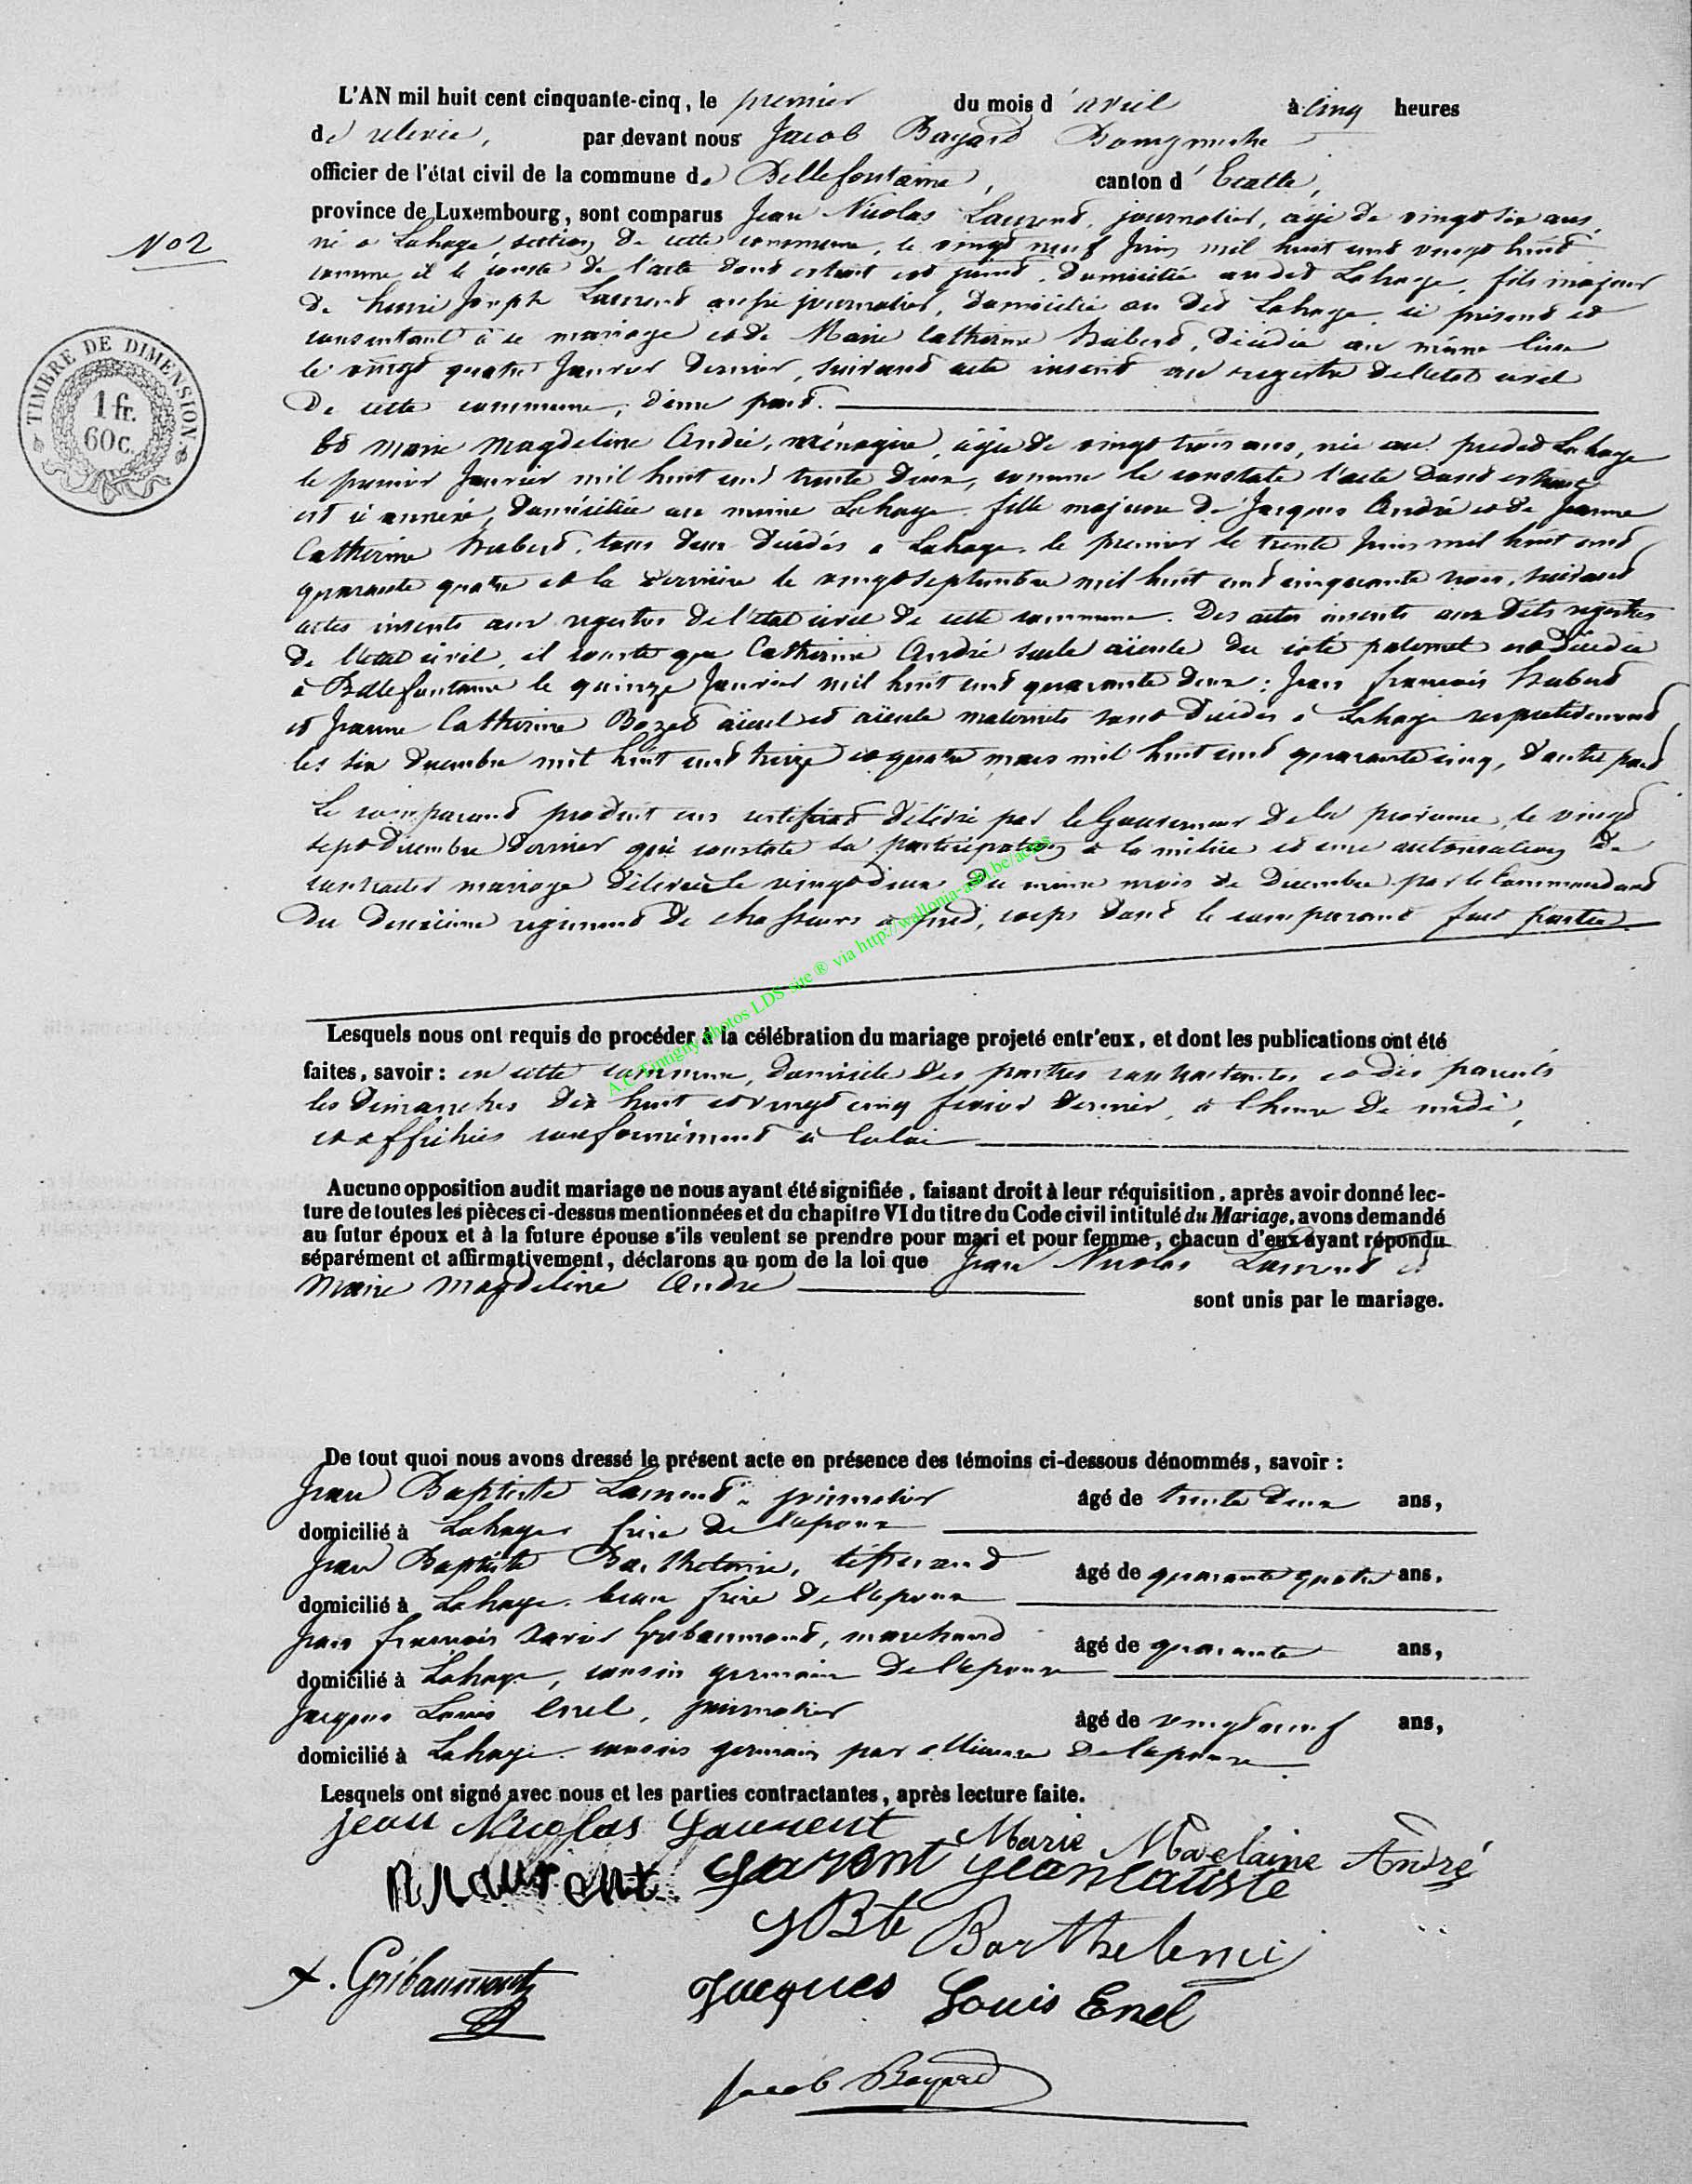 L'AN mil huit cent cinquante-cinq, le premier du mois d' avril à cinq heures
de relevée, par devant nous Jacob Bayard Bourgmestre
officier de l'état civil de la commune de Bellefontaine, canton d' Etalle,
province de Luxembourg, sont comparus Jean Nicolas Laurent, journalier, âgé de vingt six ans,
N° 2
né à Lahage, section de cette commune, le vingt neuf Juin mil huit cent vingt huit
comme il le conste de l'acte dont extrait est joint, domicilié au dit Lahage, fils majeur
de Henri Joseph Laurent aussi journalier, domicilié au dit Lahage, ici présent et
consentant à ce mariage et de Marie Catherine Hubert, décédée au même lieu
le vingt quatre Janvier dernier, suivant acte inscrit au registre de l'état civil
de cette commune, d'une part.
TIMBRE DE DIMENSION.
1 fr.
60 c.
Et Marie Magdeline André, ménagère, âgée de vingt trois ans, née au predit Lahage
le premier Janvier mil huit cent trente deux, comme le constate l'acte dont extrait
est ici annexé, domiciliée au même Lahage, fille majeure de Jacques André et de Jeanne
Catherine Hubert, tous deux décédés à Lahage, le premier le trente Juin mil huit cent
quarante quatre et la dernière le vingt septembre mil huit cent cinquante trois, suivant
actes inscrits aux registres de l'état civil de cette commune. Des actes inscrits aux dits registres
de l'état civil, il conste que Catherine André seule aïeule du coté paternel est décédée
à Bellefontaine le quinze Janvier mil huit cent quarante deux : Jean françois Hubert
et Jeanne Catherine Bozet aïeul et aïeule maternels sont décédés à Lahage respectivement
les six décembre mil huit cent treize et quatre mars mil huit cent quarante cinq, d'autre part
Le comparant produit un certificat délivré par le Gouverneur de la province, le vingt
sept Décembre dernier qui constate sa participation à la milice et une autorisation de
contracter mariage délivrée le vingt deux du même mois de Décembre par le Commandant
du deuxième régiment de chasseurs à pied, corps dont le comparant fait partie.
A.C Tintigny photos LDS site ® via http://wallonia-asbl.be/actes
Lesquels nous ont requis de procéder à la célébration du mariage projeté entr'eux, et dont les publications ont été
faites, savoir : en cette commune, domicile des parties contractantes et des parents
les dimanches dix huit et vingt cinq fevrier dernier, à l'heure de midi,
et affichées conformément à la loi
Aucune opposition audit mariage ne nous ayant été signifiée, faisant droit à leur réquisition, après avoir donné lec-
ture de toutes les pièces ci-dessus mentionnées et du chapitre VI du titre du Code civil intitulé du Mariage, avons demandé
au futur époux et à la future épouse s'ils veulent se prendre pour mari et pour femme, chacun d'eux ayant répondu
séparément et affirmativement, déclarons au nom de la loi que Jean Nicolas Laurent et
Marie Magdeline André
sont unis par le mariage.
De tout quoi nous avons dressé le présent acte en présence des témoins ci-dessous dénommés, savoir :
Jean Baptiste Laurent, journalier âgé de trente deux ans,
domicilié à Lahage, frère de l'époux
Jean Baptiste Barthelemi, tisserand âgé de quarante quatre ans,
domicilié à Lahage, beau frère de l'époux
Jean francois Xavier Gribaumont, marchand âgé de quarante ans,
domicilié à Lahage, cousin germain de l'épouse
Jacques Louis Enel, journalier âgé de vingt neuf ans,
domicilié à Lahage cousin germain par alliance de l'épouse
Lesquels ont signé avec nous et les parties contractantes, après lecture faite.
jean Nicolas Laurent Marie Madelaine André
Laurent Jean Batiste
JBte Barthelemi
x. Gribaumont
Jacques Louis Enel
Jacob Bayard